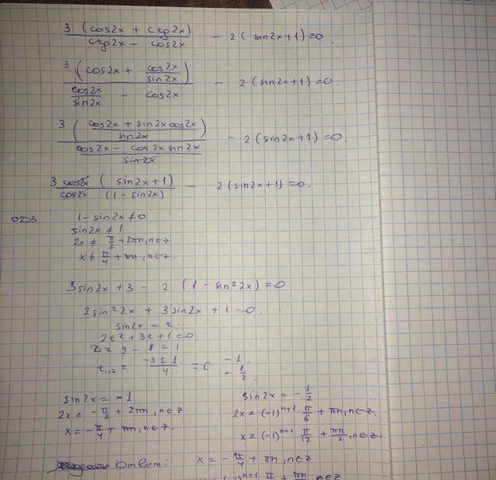 3 (cos2x + ctg2x) / ctg2x - cos2x - 2 (sin2x+1)=0
3 (cos2x + cos2x / sin2x) / cos2x / sin2x - cos2x - 2 (sin2x+1)=0
3 (cos2x + sin2x cos2x / sin2x) / cos2x - cos2x sin2x / sin2x - 2 (sin2x+1)=0.
3 cos2x (sin2x+1) / cos2x (1-sin2x) - 2(sin2x+1)=0.
ОДЗ 1-sin2x≠0
sin2x ≠ 1
2x ≠ π/2 + 2πn, n∈z
x ≠ π/4 + πn, n∈z.
3sin2x + 3 - 2 (1 - sin²2x)=0
2sin²2x + 3sin2x + 1=0.
sin2x = t.
2t²+3t+1=0
D= 9 - 8 = 1
t₁,₂ = -3±1 / 4 = [ -1. -1/2.
sin2x = -1
2x = -π/2 + 2πn, n∈z
x = -π/4 + πn, n∈z.
sin2x = -1/2
2x = (-1)ⁿ⁺¹ π/6 + πn, n∈z.
x = (-1)ⁿ⁺¹ π/12 + πn/2, n∈z.
Ответ: x = -π/4 + πn, n∈z